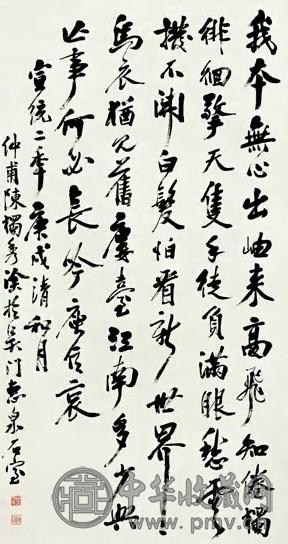 我本無心出岫来高飛知倦獨
徘徊擎天隻手徒負滿眼愁雲
撥不開白髮怕看新世界
烏衣猶見舊廔臺江南多少興
亡事何必長吟庾信哀
宣統二年庚戌清和月
仲甫陳獨秀塗於吳門惠泉石室
中华收藏网